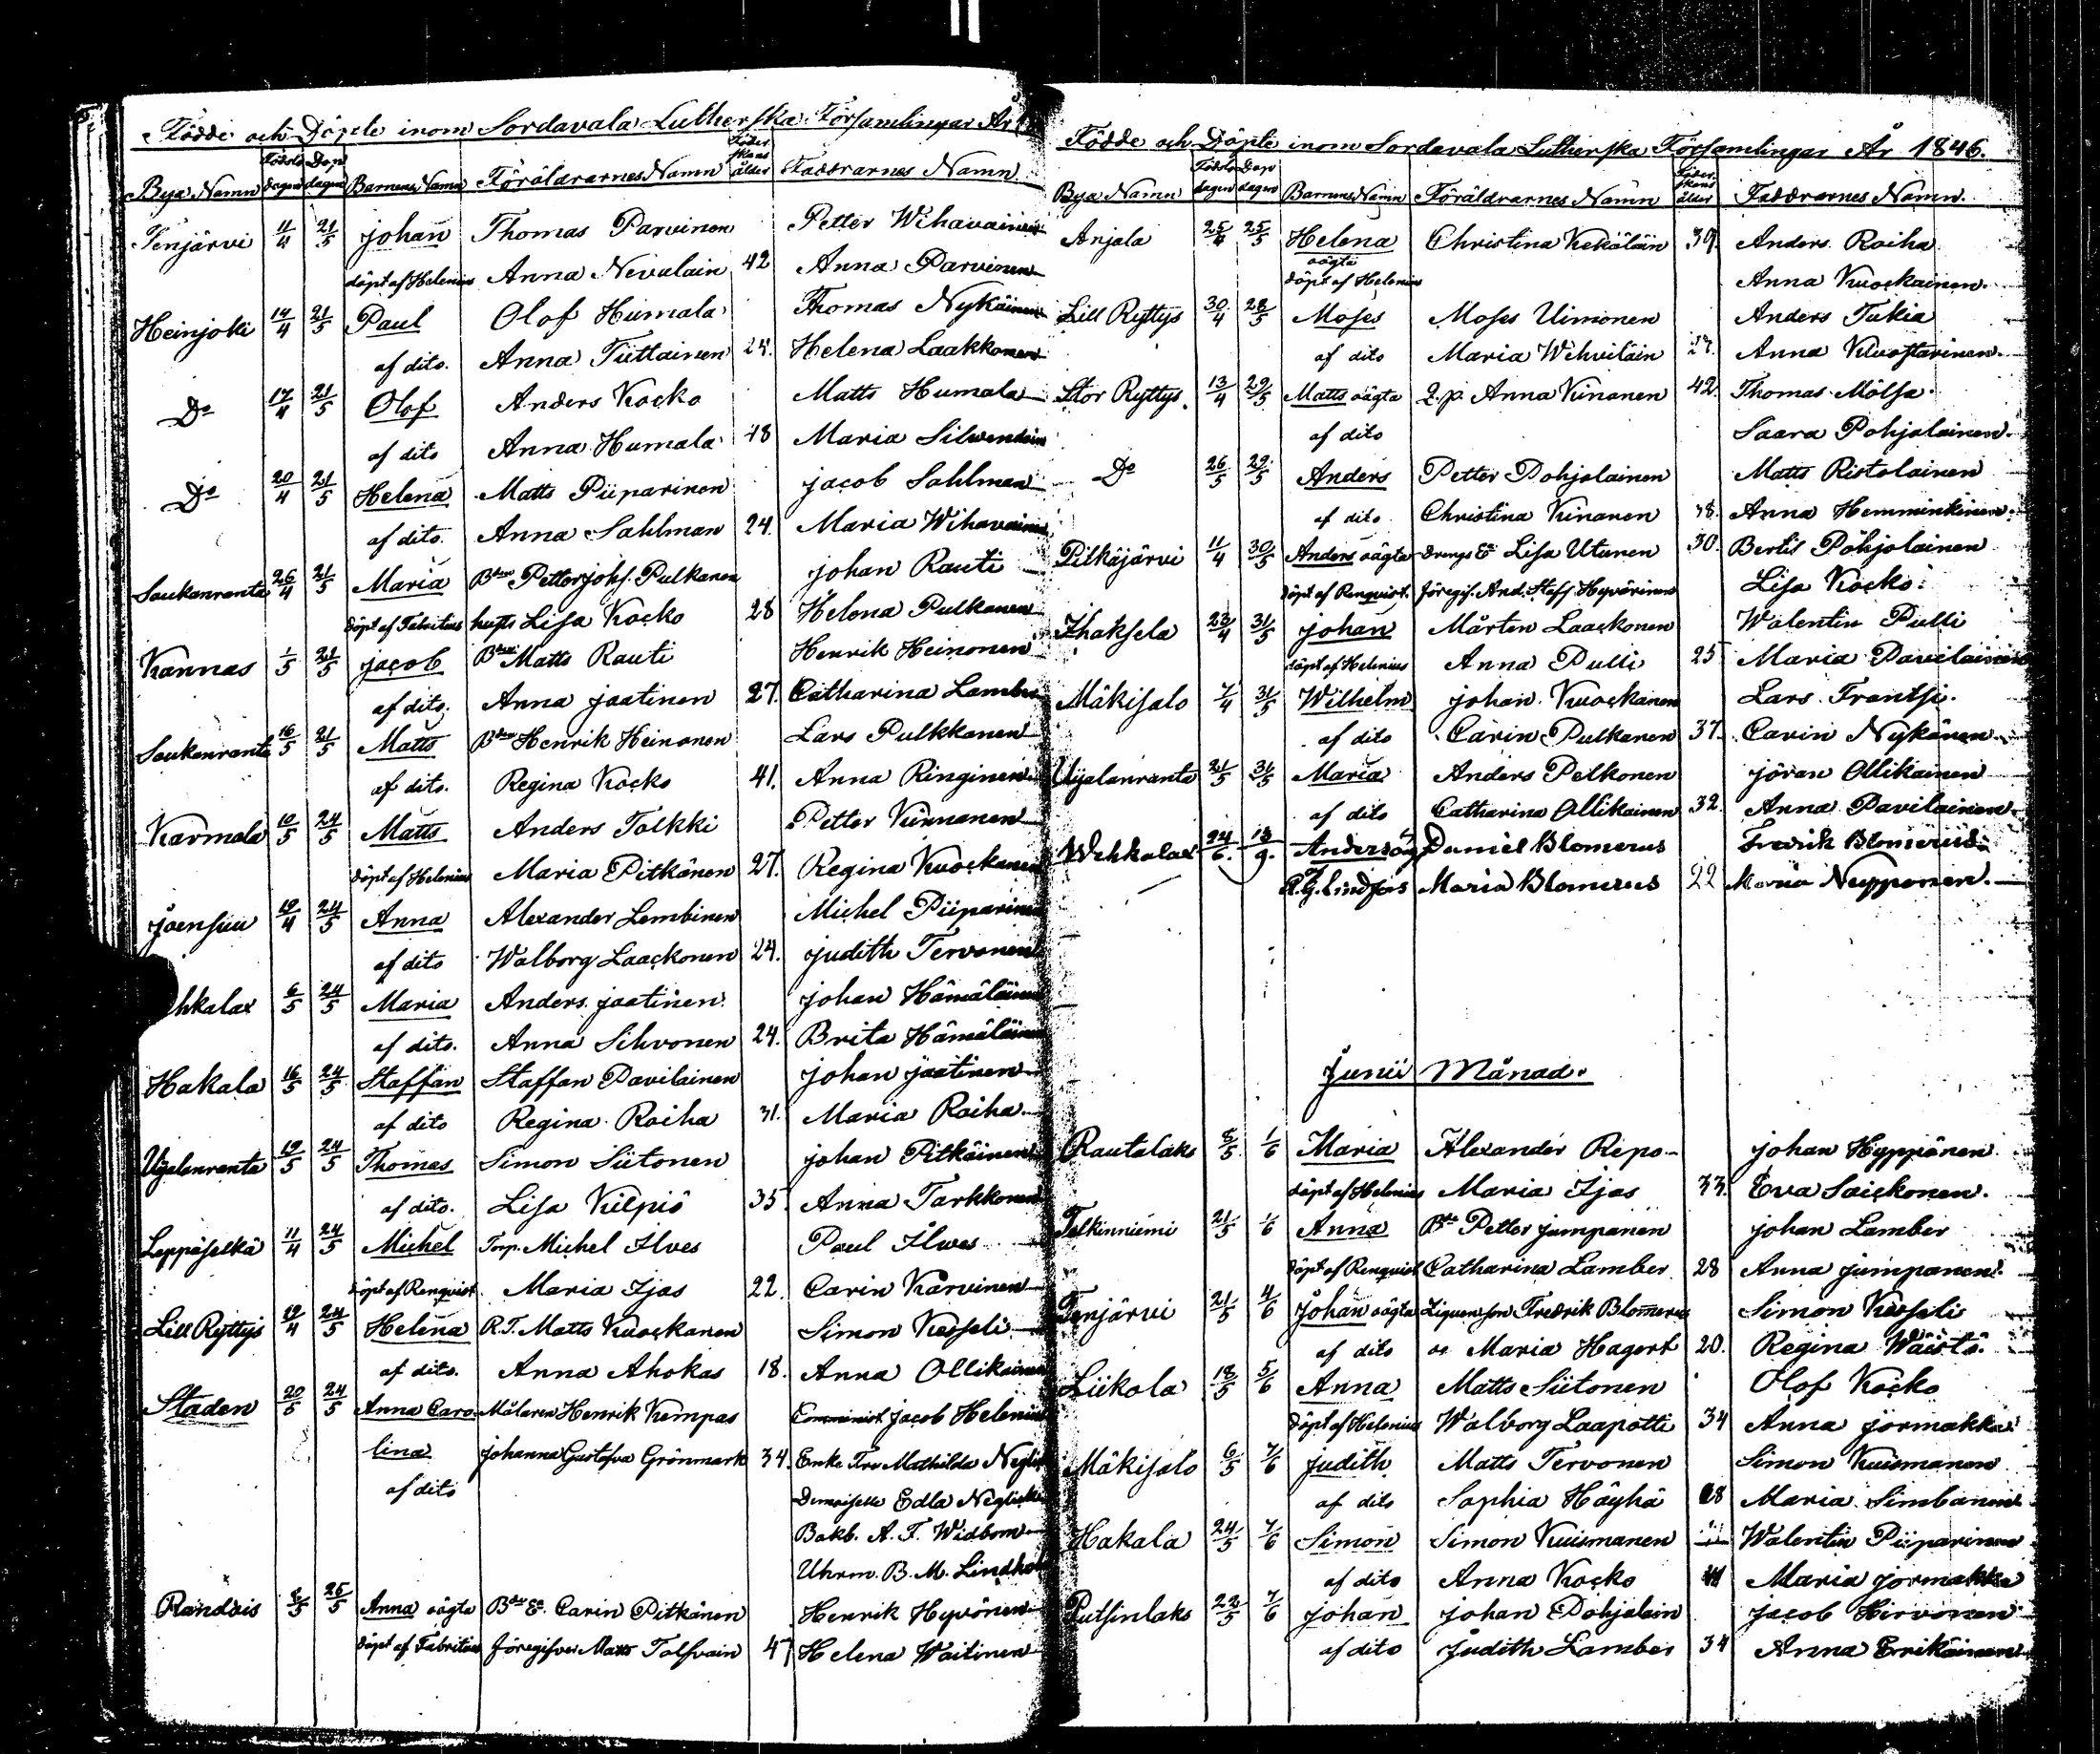 Födde och Döpte inom Sordavala Lutherska Församlingar År
Bya Namn Födelse dagen Dop dagen Barnens Namn Föräldrarnes Namn Föder skans ålder Faddrarnes Namn
Tenjärvi 11/4 21/5 Johan Thomas Parvinen Petter Wihavainen
döpt af Helenius Anna Nevalain 42 Anna Parvinen
Heinjoki 14/4 21/5 Paul Olof Humala Thomas Nykäinen
af dito. Anna Tiittainen 24. Helena Laakkonen
Do 17/4 21/5 Olof Anders Kocko Matts Humala
af dito Anna Humala 48 Maria Silvendoin
Do 20/4 21/5 Helena Matts Piiparinen Jacob Sahlman
af dito. Anna Sahlman 24. Maria Wihavainen
Soukanranta 26/4 21/5 Maria Bden Petter Johs. Pulkanen Johan Rauti
döpt af Fabritius hustr Lisa Kocko 28 Helena Pulkanen
Kannas 1/5 21/5 Jacob Bden Matts Rauti Henrik Heinonen
af dito. Anna Jaatinen 27. Catharina Lamber
Soukanranta 16/5 21/5 Matts Bden Henrik Heinonen Lars Pulkkanen
af dito. Regina Kocko 41. Anna Ringinen
Karmala 10/5 24/5 Matts Anders Tolkki Petter Kinnanen
döpt af Helenius Maria Pitkänen 27. Regina Kuockanen
Joensuu 19/4 24/5 Anna Alexander Lembinen Michel Piiparinen
af dito Walborg Laackonen 24. Judith Tervonen
hkalax 6/5 24/5 Maria Anders Jaatinen Johan Hämäläinen
af dito. Anna Sihvonen 24. Brita Hämäläinen
Hakala 16/5 24/5 Staffan Staffan Pavilainen Johan Jaatinen
af dito Regina Roiha 31. Maria Roiha
Uijalanranta 19/5 24/5 Thomas Simon Siitonen Johan Pitkäinen
af dito. Lisa Kilpiö 35 Anna Tarkkonen
Leppäselkä 11/4 24/5 Michel Torp. Michel Ilves Paul Ilwes
döpt af Renqvist Maria Ijas 22. Carin Karvinen
Lill Ryttys 19/4 24/5 Helena R.T. Matts Kuockanen Simon Kesseli
af dito. Anna Ahokas 18. Anna Ollikainen
Staden 20/5 24/5 Anna Caro- Målaren Henrik Kempas Comminist Jacob Helenius
lina Johanna Gustafva Grönmark 34. Enke Fru Mathilda Neglick
af dito Demoiselle Edla Neglick
Bokb. A. F. Widbom
Uhrm. B. M. Lindholm
Randois 8/5 25/5 Anna oägta Bde Ea Carin Pitkänen Henrik Hyvönen
döpt af Fabritius föregifver Matts Tolfvain 47 Helena Waitinen
Födde och Döpte inom Sordavala Lutherska Församlingar År 1846.
Bya Namn Födelse dagen Dop dagen Barnens Namn Föräldrarnes Namn Föder skans ålder Faddrarnes Namn.
Anjala 25/4 25/5 Helena Christina Kekäläin 39. Anders Roiha
oägta
döpt af Helenius Anna Kuockainen.
Lill Ryttys 30/4 28/5 Moses Moses Uimonen Anders Tukia
af dito Maria Wihviläin 27. Anna Kuostarinen.
Stor Ryttys 13/4 29/5 Matts oägta Q.p. Anna Kinanen 42. Thomas Mölsa
af dito Saara Pohjolainen.
Do 26/5 29/5 Anders Petter Pohjolainen Matts Ristolainen
af dito Christina Kinanen 38. Anna Hemminkinen.
Pitkäjärvi 11/4 30/5 Anders oägta Drengs Ea Lisa Utunen 30. Bertil Pohjolainen
döpt af Renqvist. föregif. And. Staff. Hyvärinen Lisa Kocko.
Ihaksela 23/4 31/5 Johan Mårten Laackonen Walentin Pulli
döpt af Helenius Anna Pulli 25 Maria Pavilainen
Mäkisalo 7/4 31/5 Wilhelm Johan Kuockanen Lars Frantsi.
af dito Carin Pulkanen 37. Carin Nykänen.
Uijalanranta 21/5 31/5 Maria Anders Pelkonen Jöran Ollikainen
af dito Catharina Ollikainen 32. Anna Pavilainen.
Wehkalax 24/6. 13/9. Anders Daniel Blomerus Fredrik Blomerus.
Lindfors Maria Blomerus 22 Maria Nupponen.
Junii Månad.
Rautalaks 8/5 1/6 Maria Alexander Repo Johan Hyppönen
döpt af Helenius Maria Ijas 33. Eva Saickonen.
Tolkinniemi 21/5 1/6 Anna Bde Petter Jumpanen Johan Lamber
döpt af Renqvist Catharina Lamber 28 Anna Jumpanen.
Tenjärvi 21/5 4/6 Johan oägta Fredrik Blomerus Simon Kesseli
af dito o Maria Hagert 20. Regina Wäistö.
Liikola 18/5 5/6 Anna Matts Siitonen Olof Kocko
döpt af Helenius Walborg Laapotti 34 Anna Jormakka
Mäkisalo 6/5 7/6 Judith Matts Tervonen Simon Kuismanen
af dito Sophia Häyhä 28 Maria Simbanen
Hakala 24/5 7/6 Simon Simon Kuismanen Walentin Piiparinen
af dito Anna Kocko 41 Maria Jormakka
Putsinlaks 22/5 7/6 Johan Johan Pohjolain Jacob Hirvonen
af dito Judith Lamber 34 Anna Erikäinen